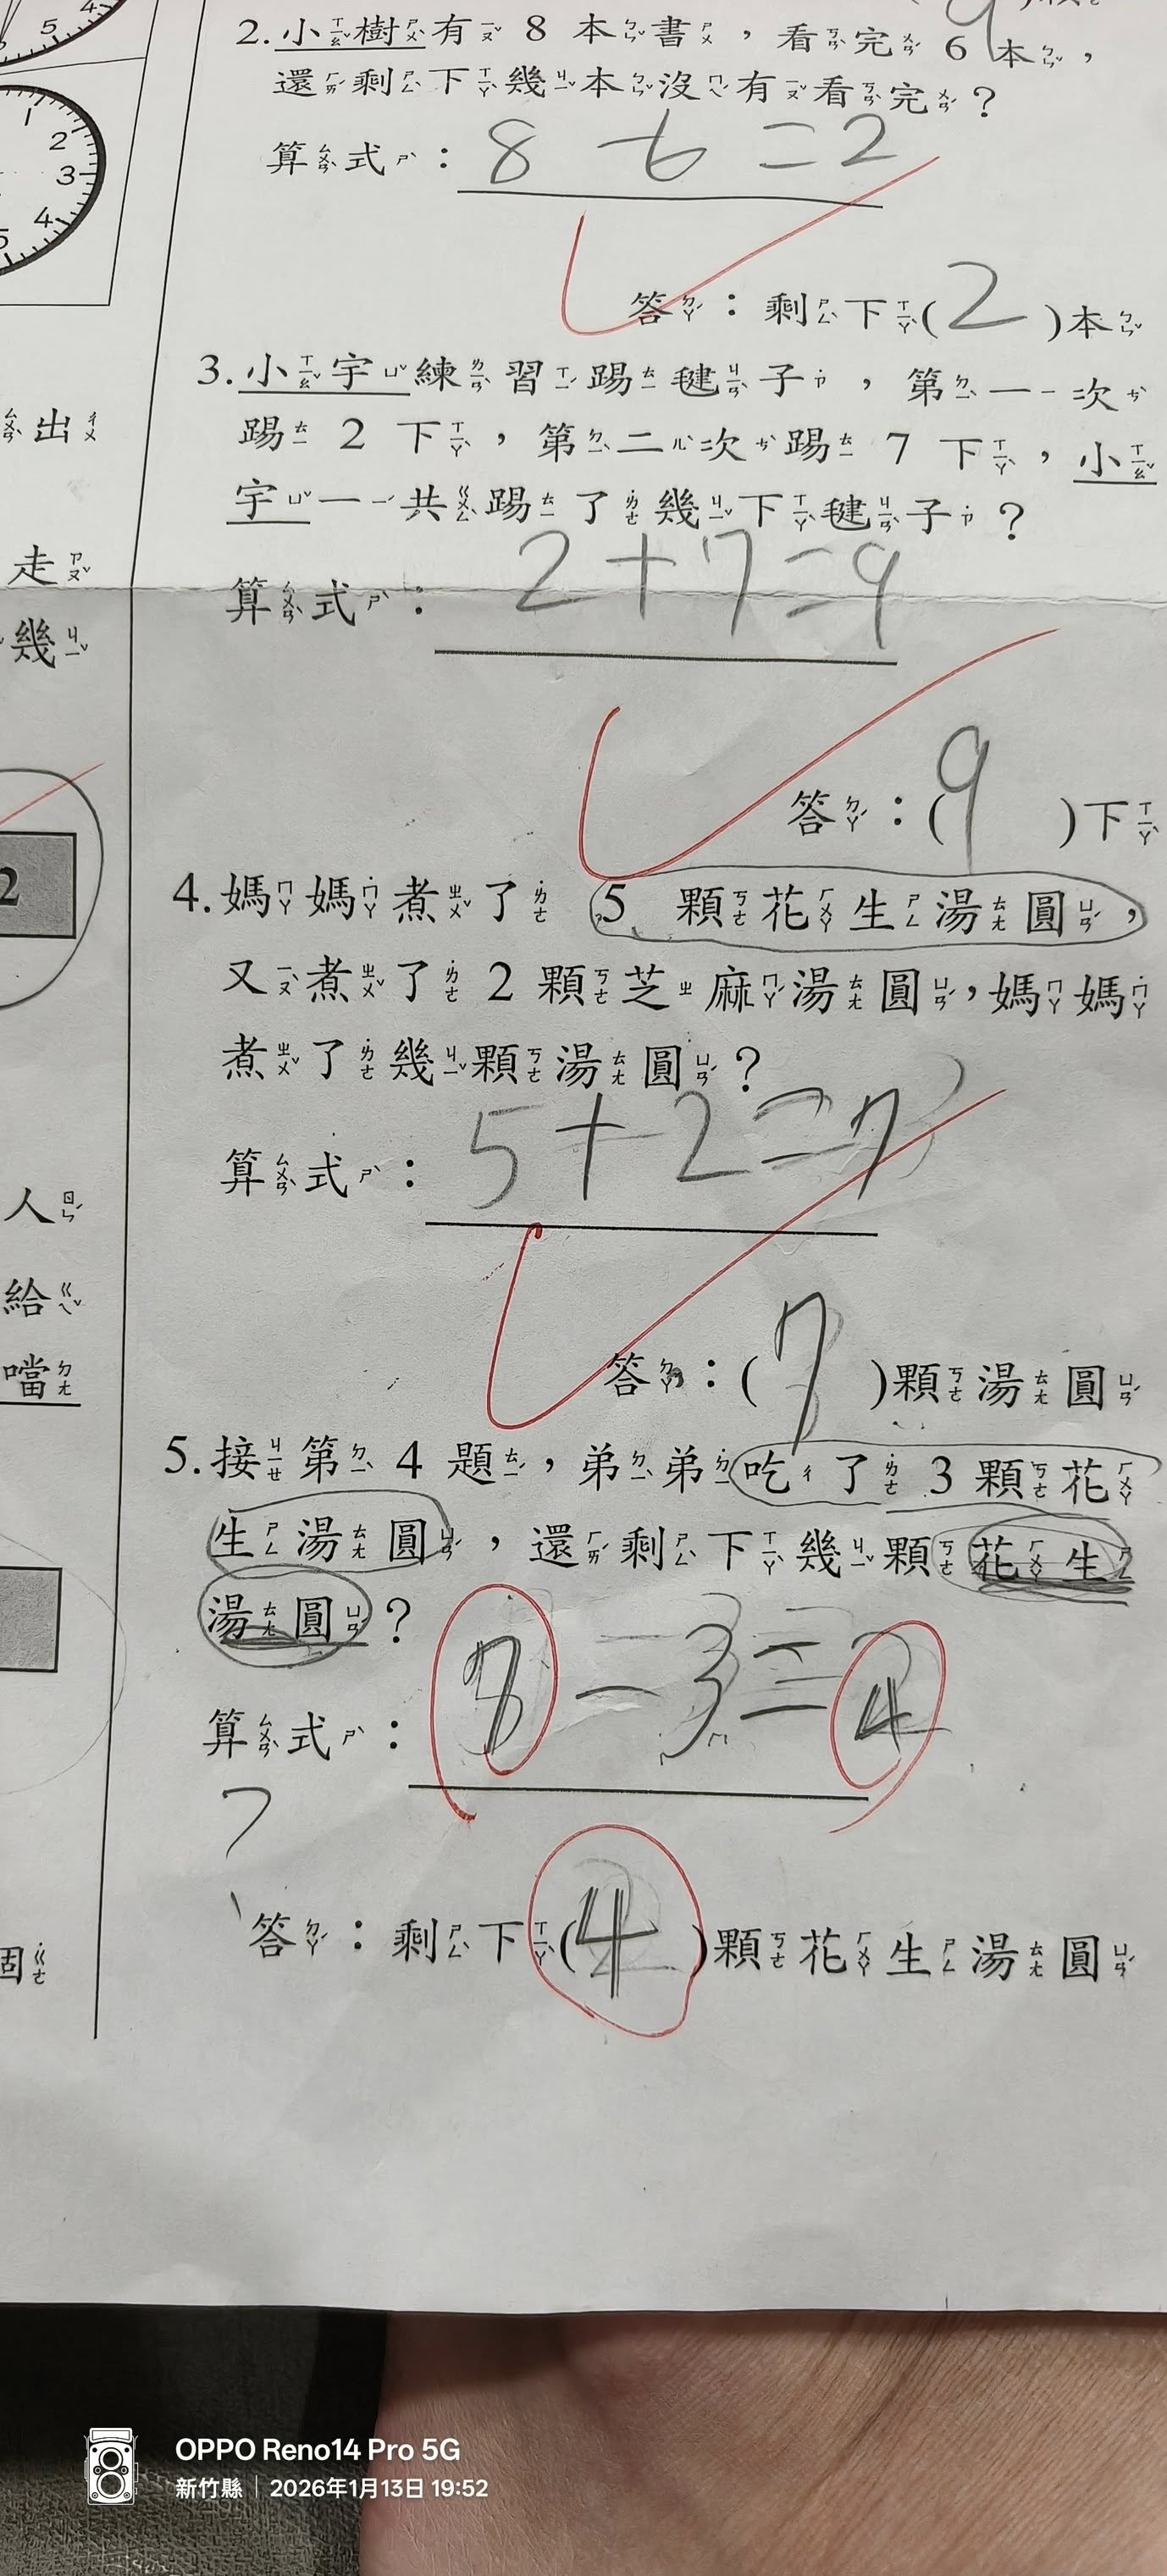 2.小樹有 8 本書，看完 6 本，
還剩下幾本沒有看完？
算式：8 - 6 = 2
答：剩下(2)本
3.小宇練習踢毽子，第一次
踢 2 下，第二次踢 7 下，小
宇一共踢了幾下毽子？
算式：2+7=9
答：(9)下
4.媽媽煮了 5 顆花生湯圓，
又煮了 2 顆芝麻湯圓，媽媽
煮了幾顆湯圓？
算式：5+2=7
答：(7)顆湯圓
5.接第 4 題，弟弟吃了 3 顆花
生湯圓，還剩下幾顆花生
湯圓？
算式：7-3=4
7
答：剩下(4)顆花生湯圓
5
4
1
2
3
4
5
出
走
幾
2
人
給
噹
個
OPPO Reno14 Pro 5G
新竹縣｜2026年1月13日 19:52